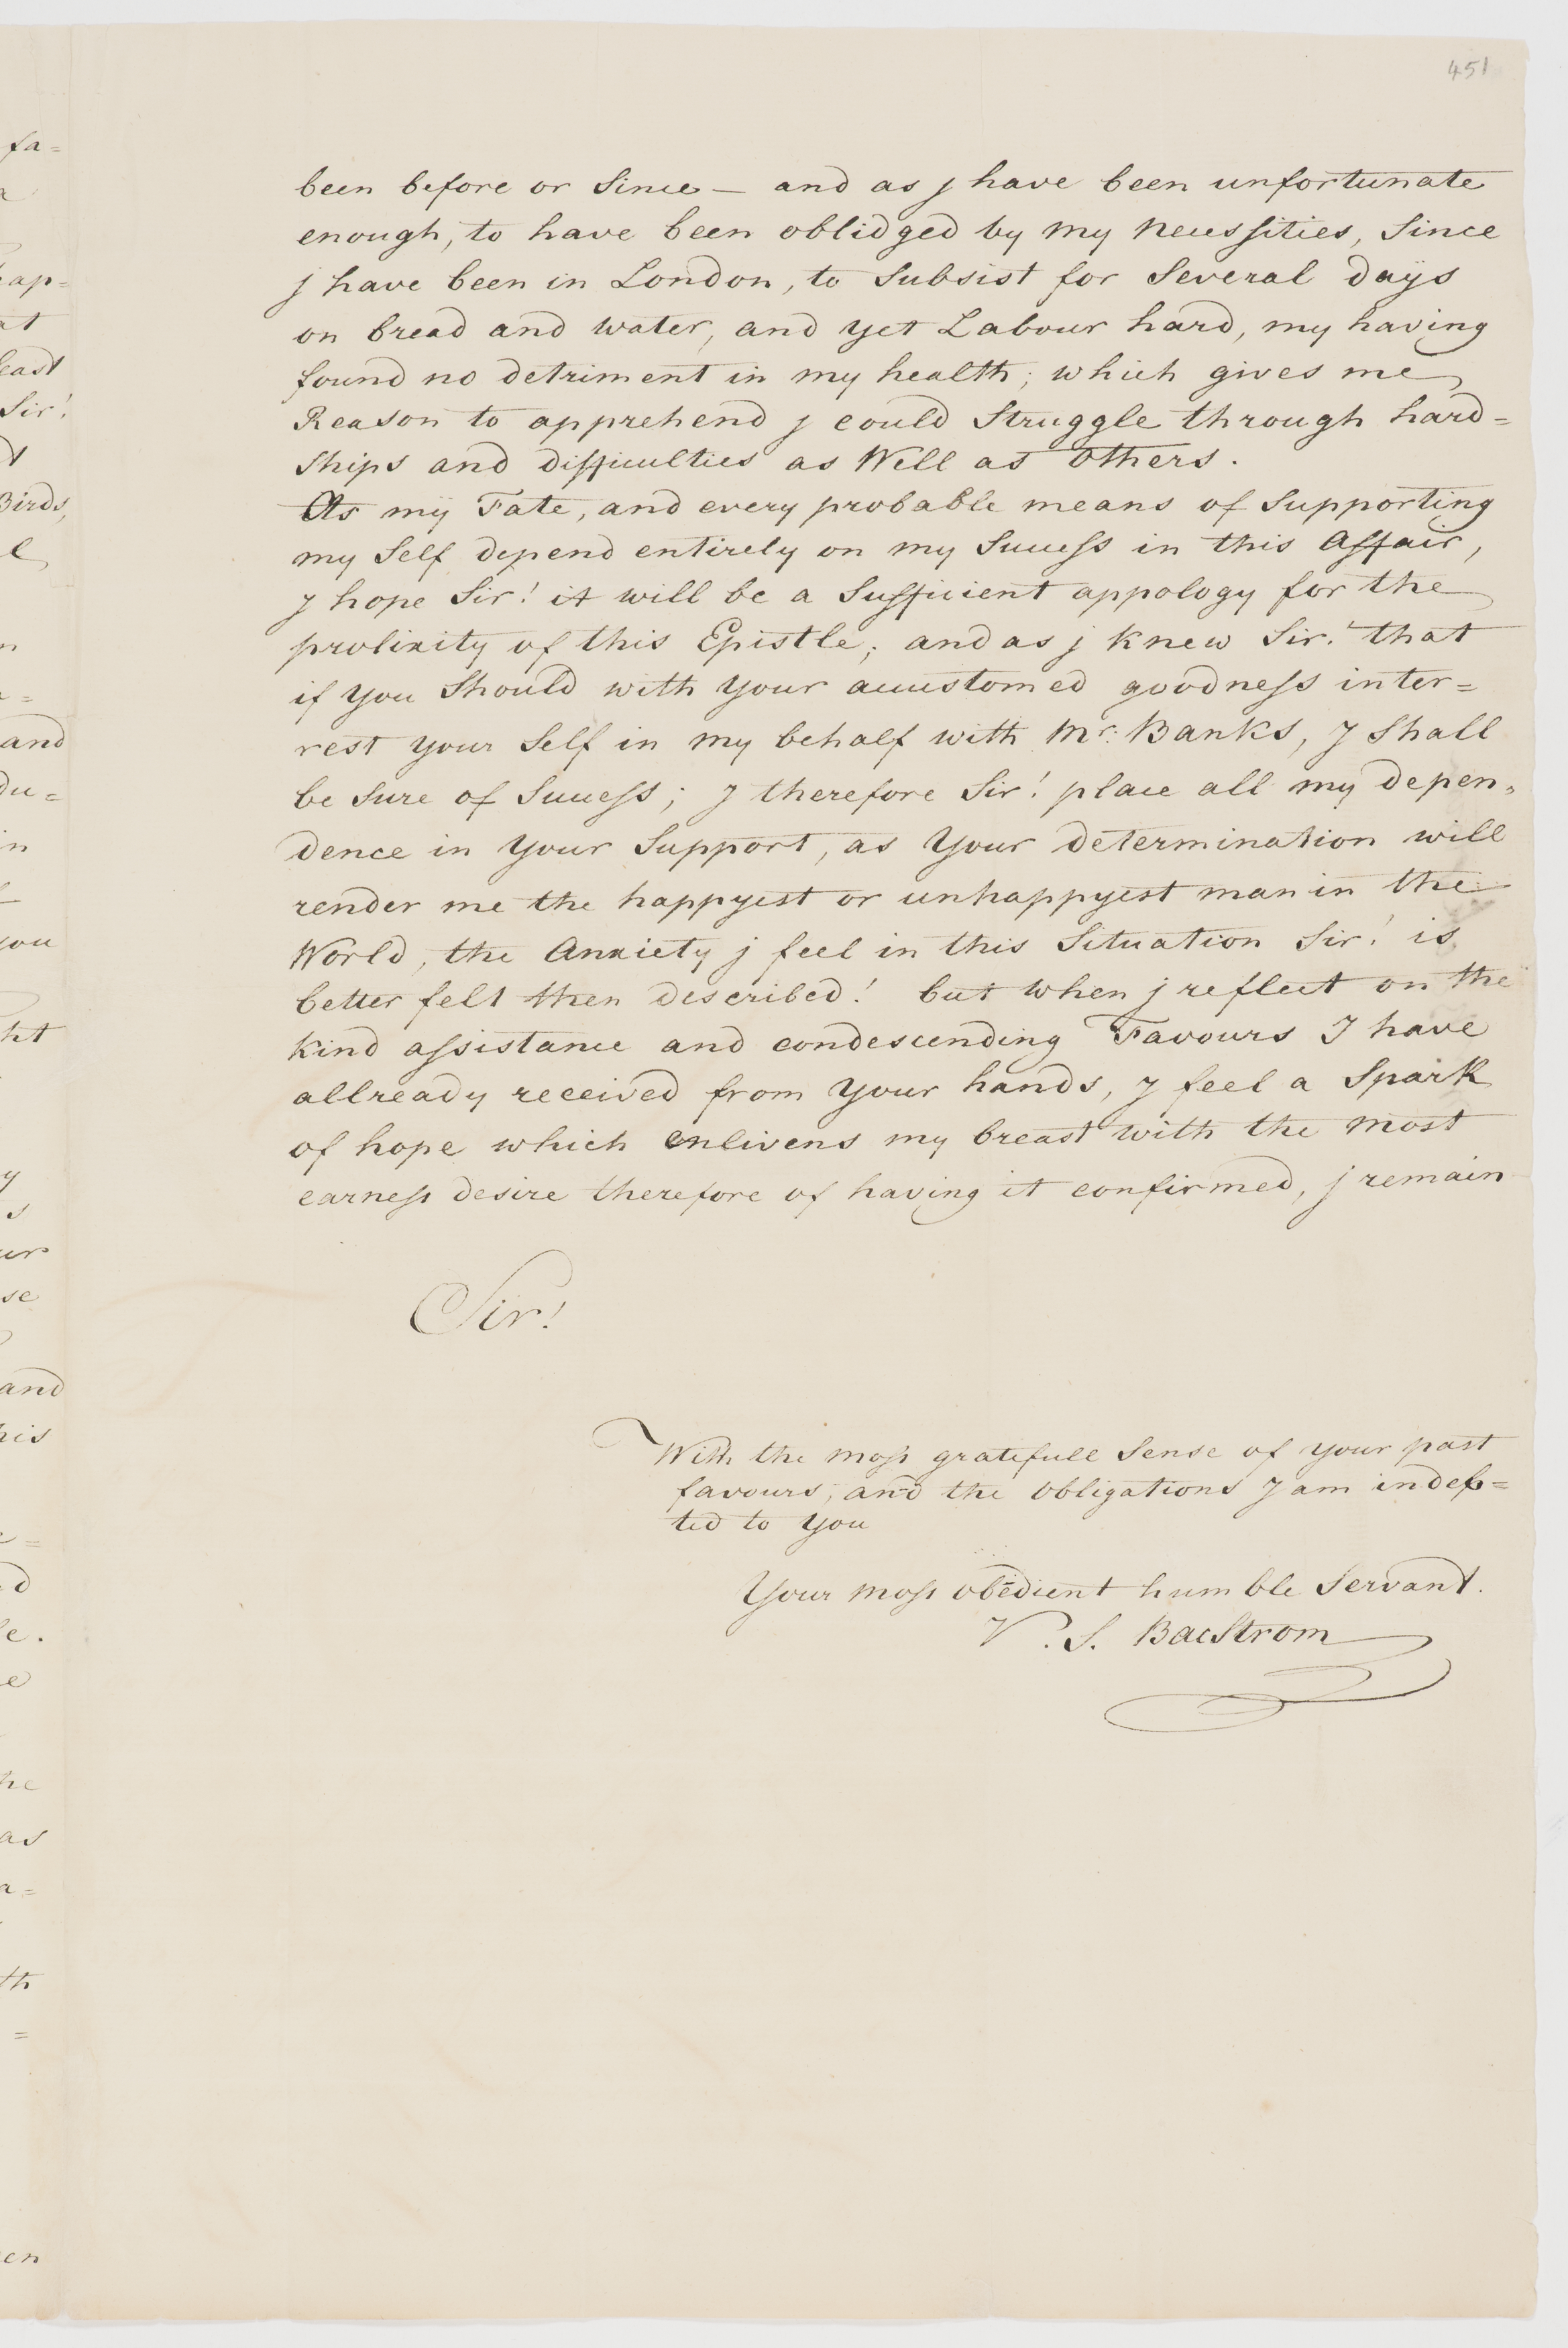 451
been before or Since — and as j have been unfortunate
enough, to have been oblidged by my Necessities, Since
j have been in London, to Subsist for Several days
on bread and water, and yet Labour hard, my having
found no detriment in my health; which gives me
Reason to apprehend j could Struggle through hard=
Ships and difficulties as Well as others.
As my Fate, and every probable means of Supporting
my Self depend entirely on my Success in this Affair,
J hope Sir! it will be a Sufficient appology for the
prolixity of this Epistle; and as j Knew Sir! that
if you Should with your accustomed goodness inter=
rest your Self in my behalf with Mr. Banks, J Shall
be Sure of Success; J therefore Sir! place all my depen=
dence in your Support, as your determination will
render me the happyest or unhappyest man in the
World, the Anxiety j feel in this Situation Sir! is
better felt then described! but when j reflect on the
Kind assistance and condescending Favours J have
allready received from your hands, J feel a Spark
of hope which enlivens my breast with the most
earness desire therefore of having it confirmed, j remain
Sir!
With the moss gratefull Sense of your past
favours, and the obligations J am indeb=
ted to you
Your moss obedient humble Servant.
V. S. BacStrom